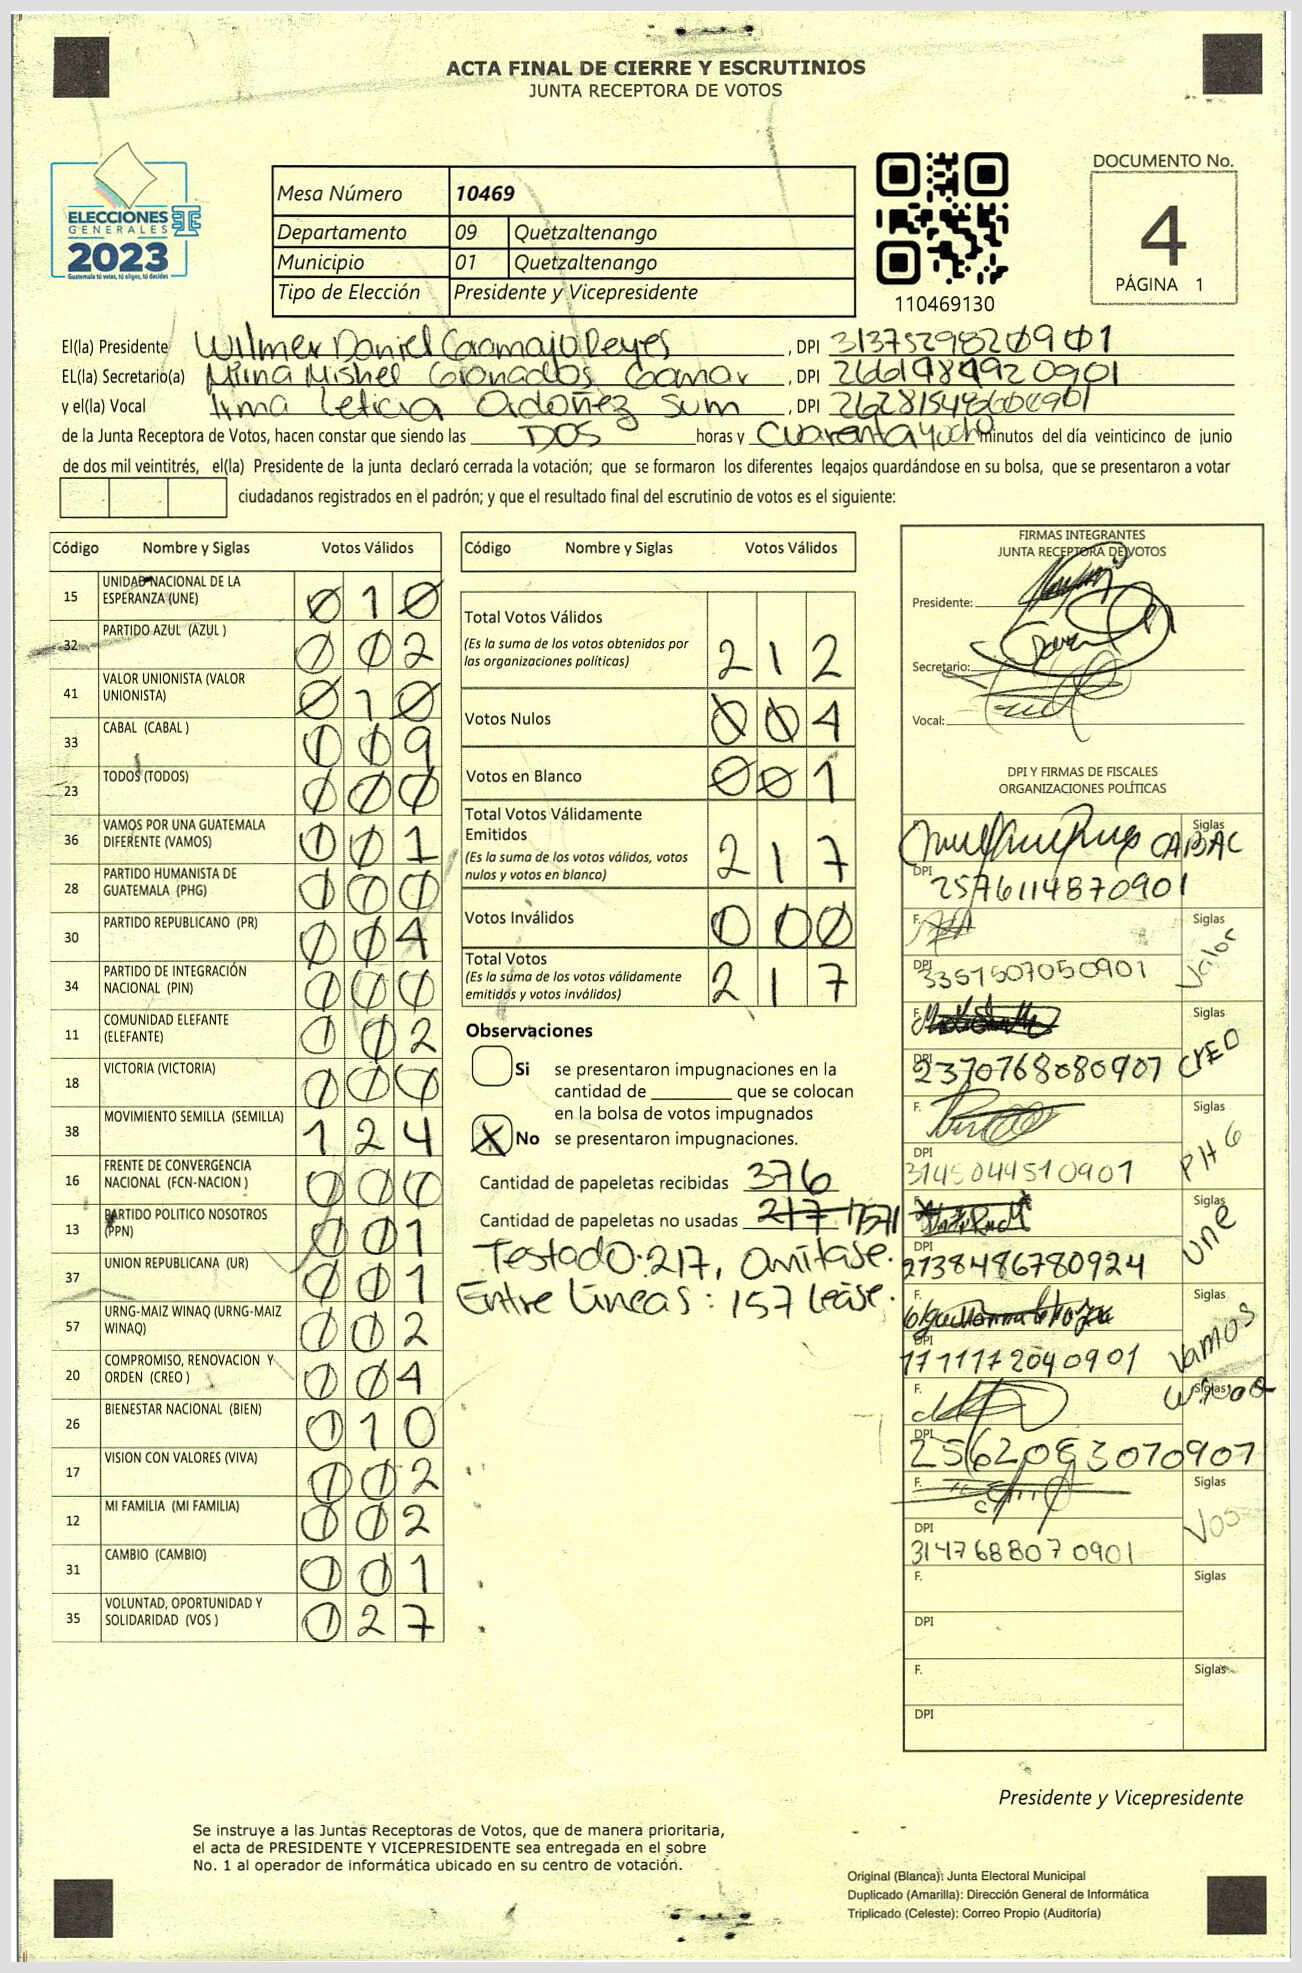 ACTA FINAL DE CIERRE Y ESCRUTINIOS
JUNTA RECEPTORA DE VOTOS
ELECCIONES
GENERALES
2023
Guatemala tú votas, tú eliges, tú decides
Mesa Número 10469
Departamento 09 Quetzaltenango
Municipio 01 Quetzaltenango
Tipo de Elección Presidente y Vicepresidente
110469130
DOCUMENTO No.
4
PÁGINA 1
El(la) Presidente Wilmer Daniel Caramajo Reyes, DPI 3137529820901
EL(la) Secretario(a) Mirna Mishel Granados Gamar, DPI 2661984920901
y el(la) Vocal Irma Leticia Ordoñez Sum, DPI
de la Junta Receptora de Votos, hacen constar que siendo las DOS horas y Cuarenta y ocho minutos del día veinticinco de junio
de dos mil veintitrés, el(la) Presidente de la junta declaró cerrada la votación; que se formaron los diferentes legajos guardándose en su bolsa, que se presentaron a votar
ciudadanos registrados en el padrón; y que el resultado final del escrutinio de votos es el siguiente:
Código Nombre y Siglas Votos Válidos
15 UNIDAD NACIONAL DE LA ESPERANZA (UNE) 010
32 PARTIDO AZUL (AZUL ) 002
41 VALOR UNIONISTA (VALOR UNIONISTA) 010
33 CABAL (CABAL ) 009
23 TODOS (TODOS) 000
36 VAMOS POR UNA GUATEMALA DIFERENTE (VAMOS) 001
28 PARTIDO HUMANISTA DE GUATEMALA (PHG) 000
30 PARTIDO REPUBLICANO (PR) 004
34 PARTIDO DE INTEGRACIÓN NACIONAL (PIN) 000
11 COMUNIDAD ELEFANTE (ELEFANTE) 002
18 VICTORIA (VICTORIA) 000
38 MOVIMIENTO SEMILLA (SEMILLA) 124
16 FRENTE DE CONVERGENCIA NACIONAL (FCN-NACION ) 000
13 PARTIDO POLITICO NOSOTROS (PPN) 001
37 UNION REPUBLICANA (UR) 001
57 URNG-MAIZ WINAQ (URNG-MAIZ WINAQ) 002
20 COMPROMISO, RENOVACION Y ORDEN (CREO ) 004
26 BIENESTAR NACIONAL (BIEN) 010
17 VISION CON VALORES (VIVA) 002
12 MI FAMILIA (MI FAMILIA) 002
31 CAMBIO (CAMBIO) 001
35 VOLUNTAD, OPORTUNIDAD Y SOLIDARIDAD (VOS ) 027
Código Nombre y Siglas Votos Válidos
Total Votos Válidos 212
(Es la suma de los votos obtenidos por
las organizaciones políticas)
Votos Nulos 004
Votos en Blanco 001
Total Votos Válidamente
Emitidos 217
(Es la suma de los votos válidos, votos
nulos y votos en blanco)
Votos Inválidos 000
Total Votos 217
(Es la suma de los votos válidamente
emitidos y votos inválidos)
Observaciones
Si se presentaron impugnaciones en la
cantidad de que se colocan
en la bolsa de votos impugnados
X No se presentaron impugnaciones.
Cantidad de papeletas recibidas 376
Cantidad de papeletas no usadas 217
Testado: 217, Omítase.
Entre líneas: 157 léase.
FIRMAS INTEGRANTES
JUNTA RECEPTORA DE VOTOS
Presidente:
Secretario:
Vocal:
DPI Y FIRMAS DE FISCALES
ORGANIZACIONES POLÍTICAS
Siglas CABAL
DPI 2576114870901
F. Siglas Valor
DPI 3351507050901
F. Siglas CREO
DPI 2370768080907
F. Siglas PHG
DPI 3145044510901
F. Siglas UNE
DPI 2738486780924
F. Siglas Vamos
DPI 1711172040901
F. Siglas Winaq
DPI 2562083070907
F. Siglas Vos
DPI 3147688070901
F. Siglas
DPI
F. Siglas
DPI
Presidente y Vicepresidente
Se instruye a las Juntas Receptoras de Votos, que de manera prioritaria,
el acta de PRESIDENTE Y VICEPRESIDENTE sea entregada en el sobre
No. 1 al operador de informática ubicado en su centro de votación.
Original (Blanca): Junta Electoral Municipal
Duplicado (Amarilla): Dirección General de Informática
Triplicado (Celeste): Correo Propio (Auditoría)